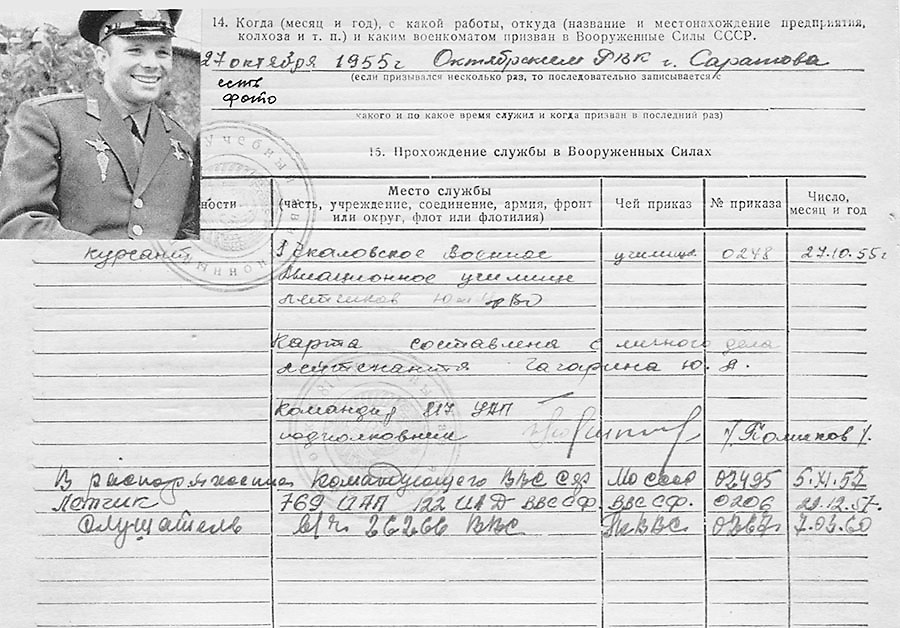 14. Когда (месяц и год), с какой работы, откуда (название и местонахождение предприятия,
колхоза и т. п.) и каким военкоматом призван в Вооруженные Силы СССР.
27 октября 1955 г Октябрьским РВК г. Саратова
(если призывался несколько раз, то последовательно записывается с
есть
фото
какого и по какое время служил и когда призван в последний раз)
15. Прохождение службы в Вооруженных Силах
ности
Место службы
(часть, учреждение, соединение, армия, фронт
или округ, флот или флотилия)
Чей приказ
№ приказа
Число,
месяц и год
курсант Чкаловское Военное училище 0248 27.10.55г
Авиационное училище
летчиков
Карта составлена с личного дела
лейтенанта Гагарина Ю. А.
Командир УАП
подполковник
В распоряжении Командующего ВВС СФ 02495 5.XI.57
Летчик 769 ИАП 122 ИАД ВВС СФ. ВВС СФ. 0206 29.12.57.
Слушатель в/ч. 26266 ВВС 0267 7.03.60